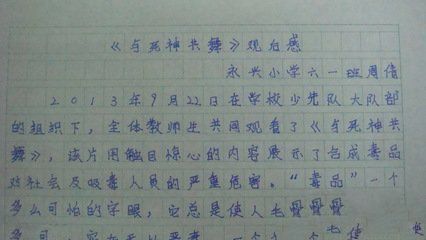 《与死神共舞》观后感
永兴小学六一班周倩
2013年9月22日在学校少先队大队部
的组织下，全体教师生共同观看了《与死神共
舞》，该片用触目惊心的内容展示了合成毒品
对社会及吸毒人员的严重危害。"毒品"一个
多么可怕的字眼，它总是使人毛骨骨骨